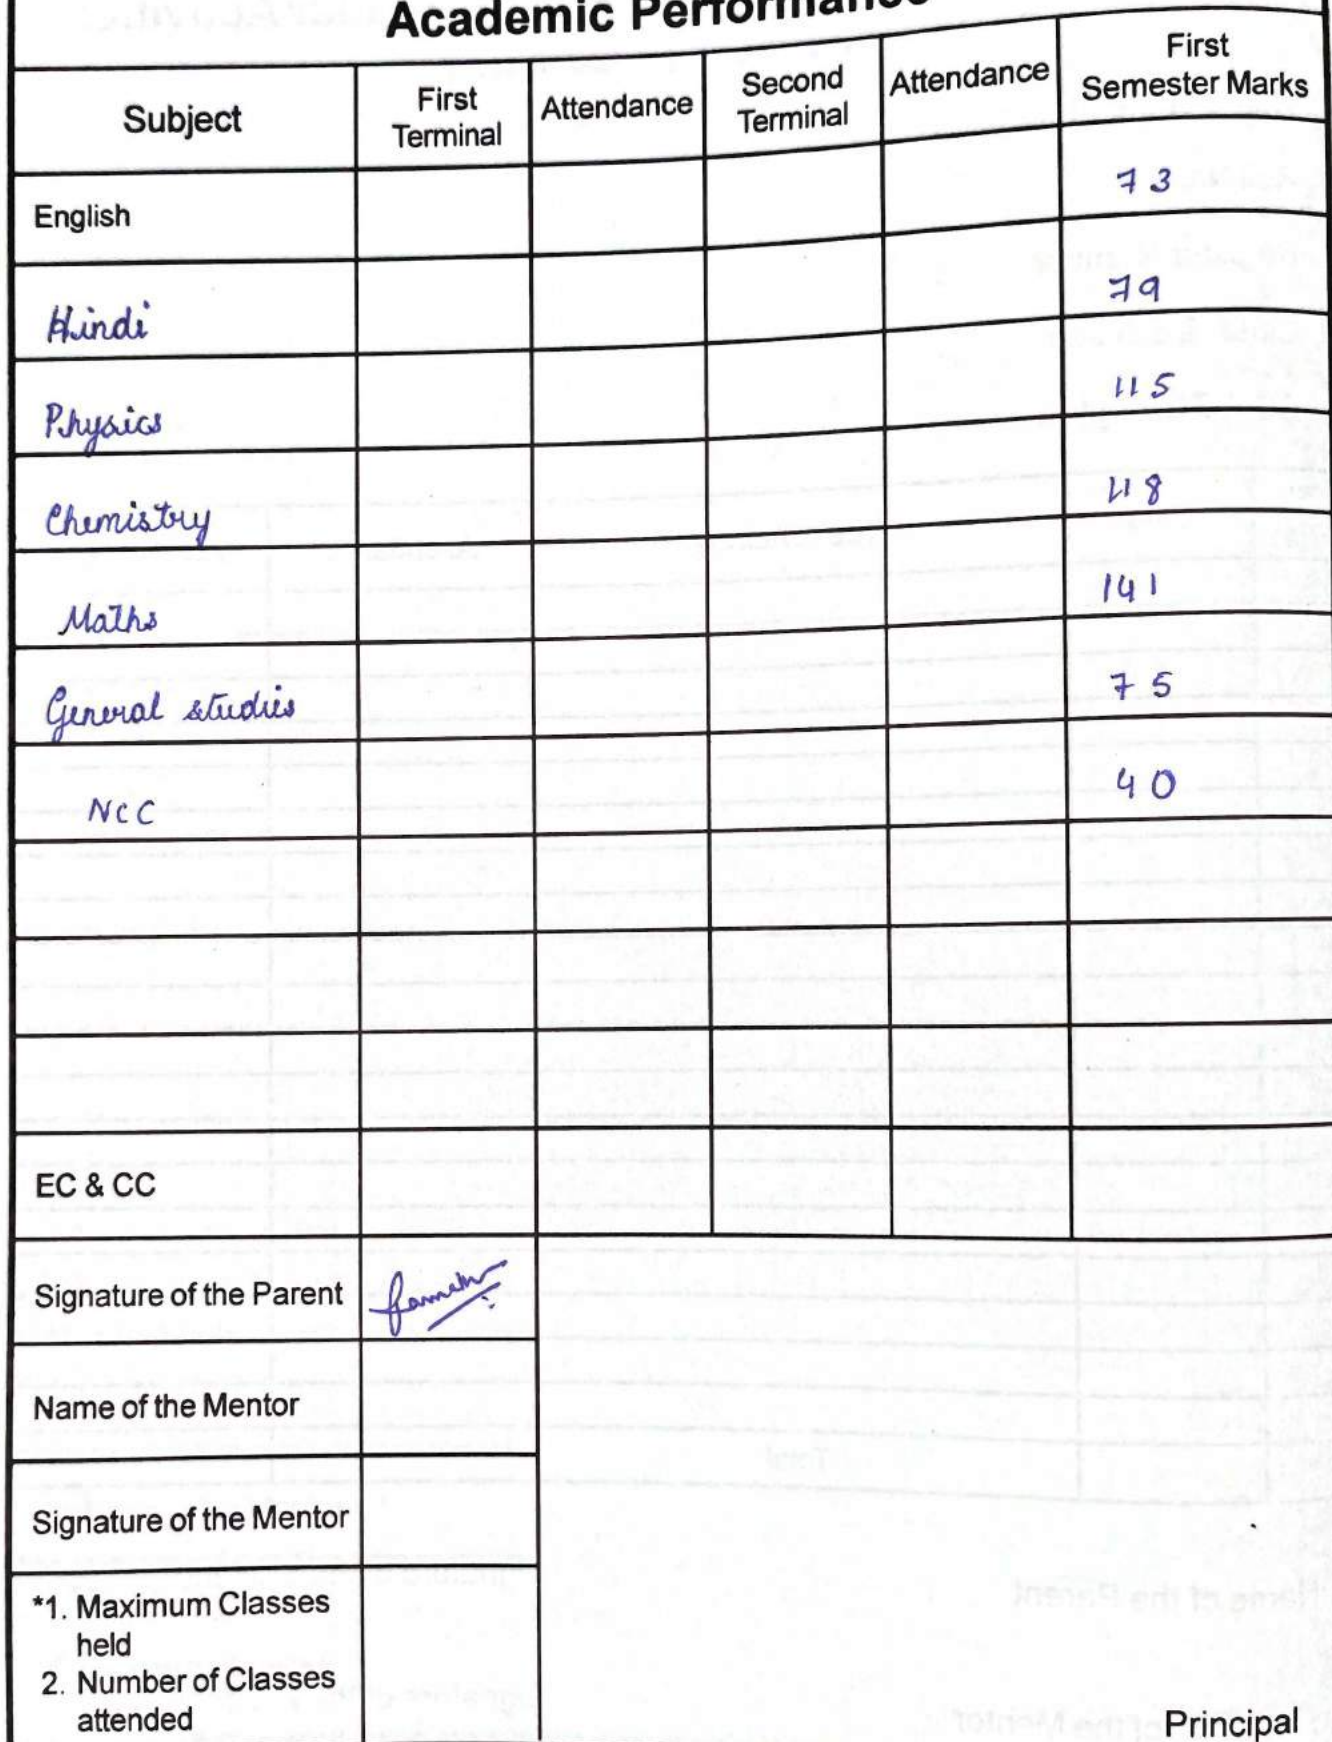 Academic Performance
Subject
First
Terminal
Attendance
Second
Terminal
Attendance
First
Semester Marks
English
73
Hindi
79
Physics
115
Chemistry
118
Maths
141
General studies
75
NCC
40
EC & CC
Signature of the Parent
Name of the Mentor
Signature of the Mentor
*1. Maximum Classes
held
2. Number of Classes
attended
Principal